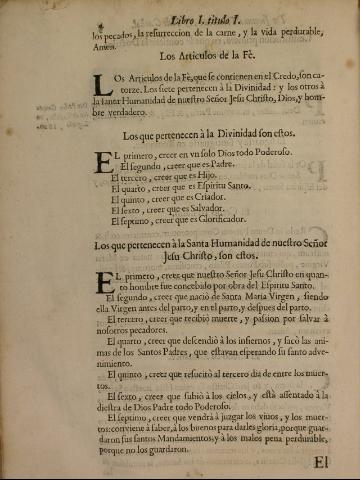 Libro I. titulo I.
los pecados, la resurreccion de la carne, y la vida perdurable,
Amen.
Los Articulos de la Fè.
LOs Articulos de la Fè, que se contienen en el Credo, son ca-
torze. Los siete pertenecen à la Divinidad: y los otros à
la Santa Humanidad de nuestro Señor Jesu Christo, Dios, y hom-
bre verdadero.
Los que pertenecen à la Divinidad son estos.
EL primero, creer en vn solo Dios todo Poderoso.
El segundo, creer que es Padre.
El tercero, creer que es Hijo.
El quarto, creer que es Espiritu Santo.
El quinto, creer que es Criador.
El sexto, creer que es Salvador.
El septimo, creer que es Glorificador.
Los que pertenecen à la Santa Humanidad de nuestro Señor
Jesu Christo, son estos.
EL primero, creer que nuestro Señor Jesu Christo en quan-
to hombre fue concebido por obra del Espiritu Santo.
El segundo, creer que naciò de Santa Maria Virgen, siendo
ella Virgen antes del parto, y en el parto, y despues del parto.
El tercero, creer que recibiò muerte, y passion por salvar à
nosotros pecadores.
El quarto, creer que descendiò à los infiernos, y sacò las ani-
mas de los Santos Padres, que estavan esperando su santo adve-
nimiento.
El quinto, creer que resucitò al tercero dia de entre los muer-
tos.
El sexto, creer que subiò à los cielos, y està assentado à la
diestra de Dios Padre todo Poderoso.
El septimo, creer que vendrà à juzgar los vivos, y los muer-
tos: conviene à saber, à los buenos para darles gloria, porque guar-
daron sus santos Mandamientos, y à los malos pena perdurable,
porque no los guardaron.
El